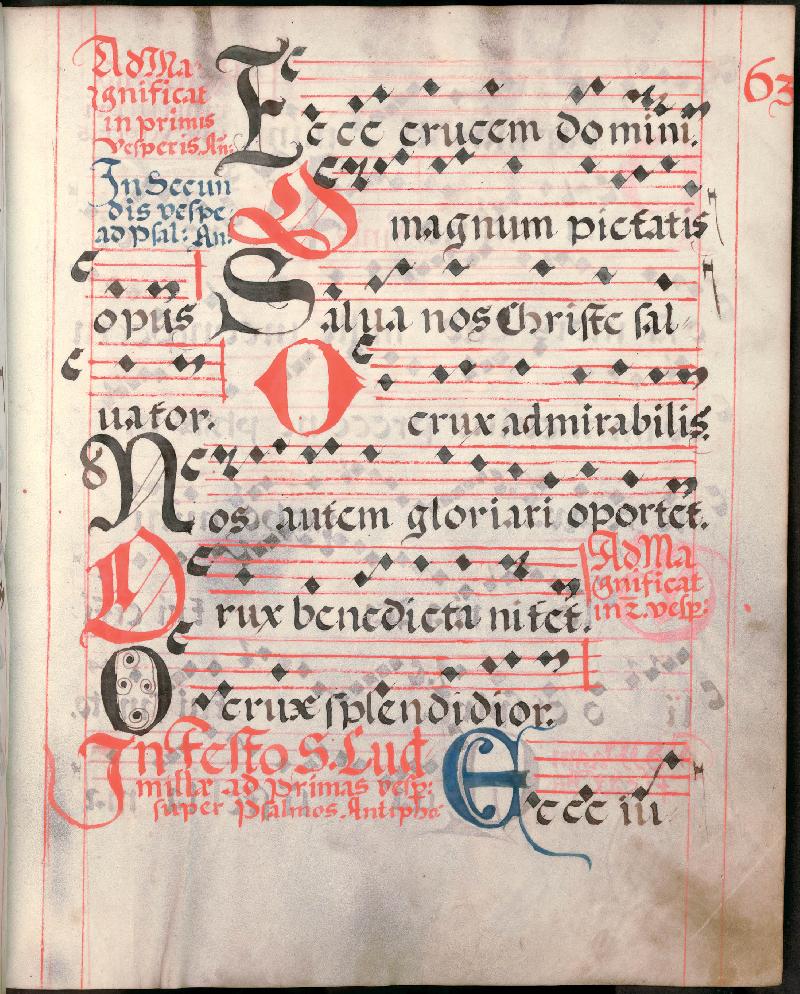 63
Ad Ma
gnificat
in primis
vesperis. An:
Ecce crucem domini.
In Secun
dis vespe:
ad Psal: An:
O magnum pietatis
opus Salua nos Christe sal
uator. O crux admirabilis.
Nos autem gloriari oportet.
Crux benedicta nitet.
Ad Ma
gnificat
in 2. vesp:
O crux splendidior.
In festo S. Lud
millæ ad Primas vesp:
super Psalmos. Antipho
Ecce iii